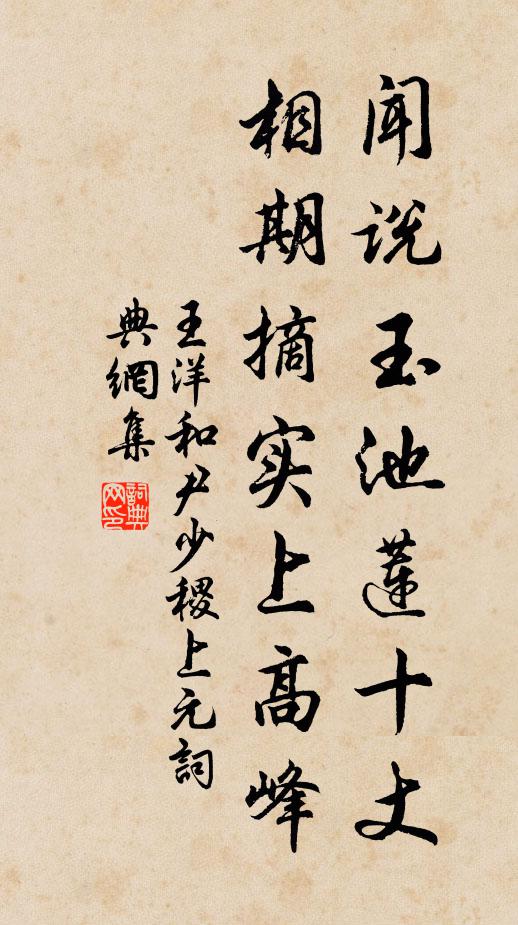 闻说玉池莲十丈
相期摘实上高峰
王洋和尹少稷上元詞
典網集
詞典网印